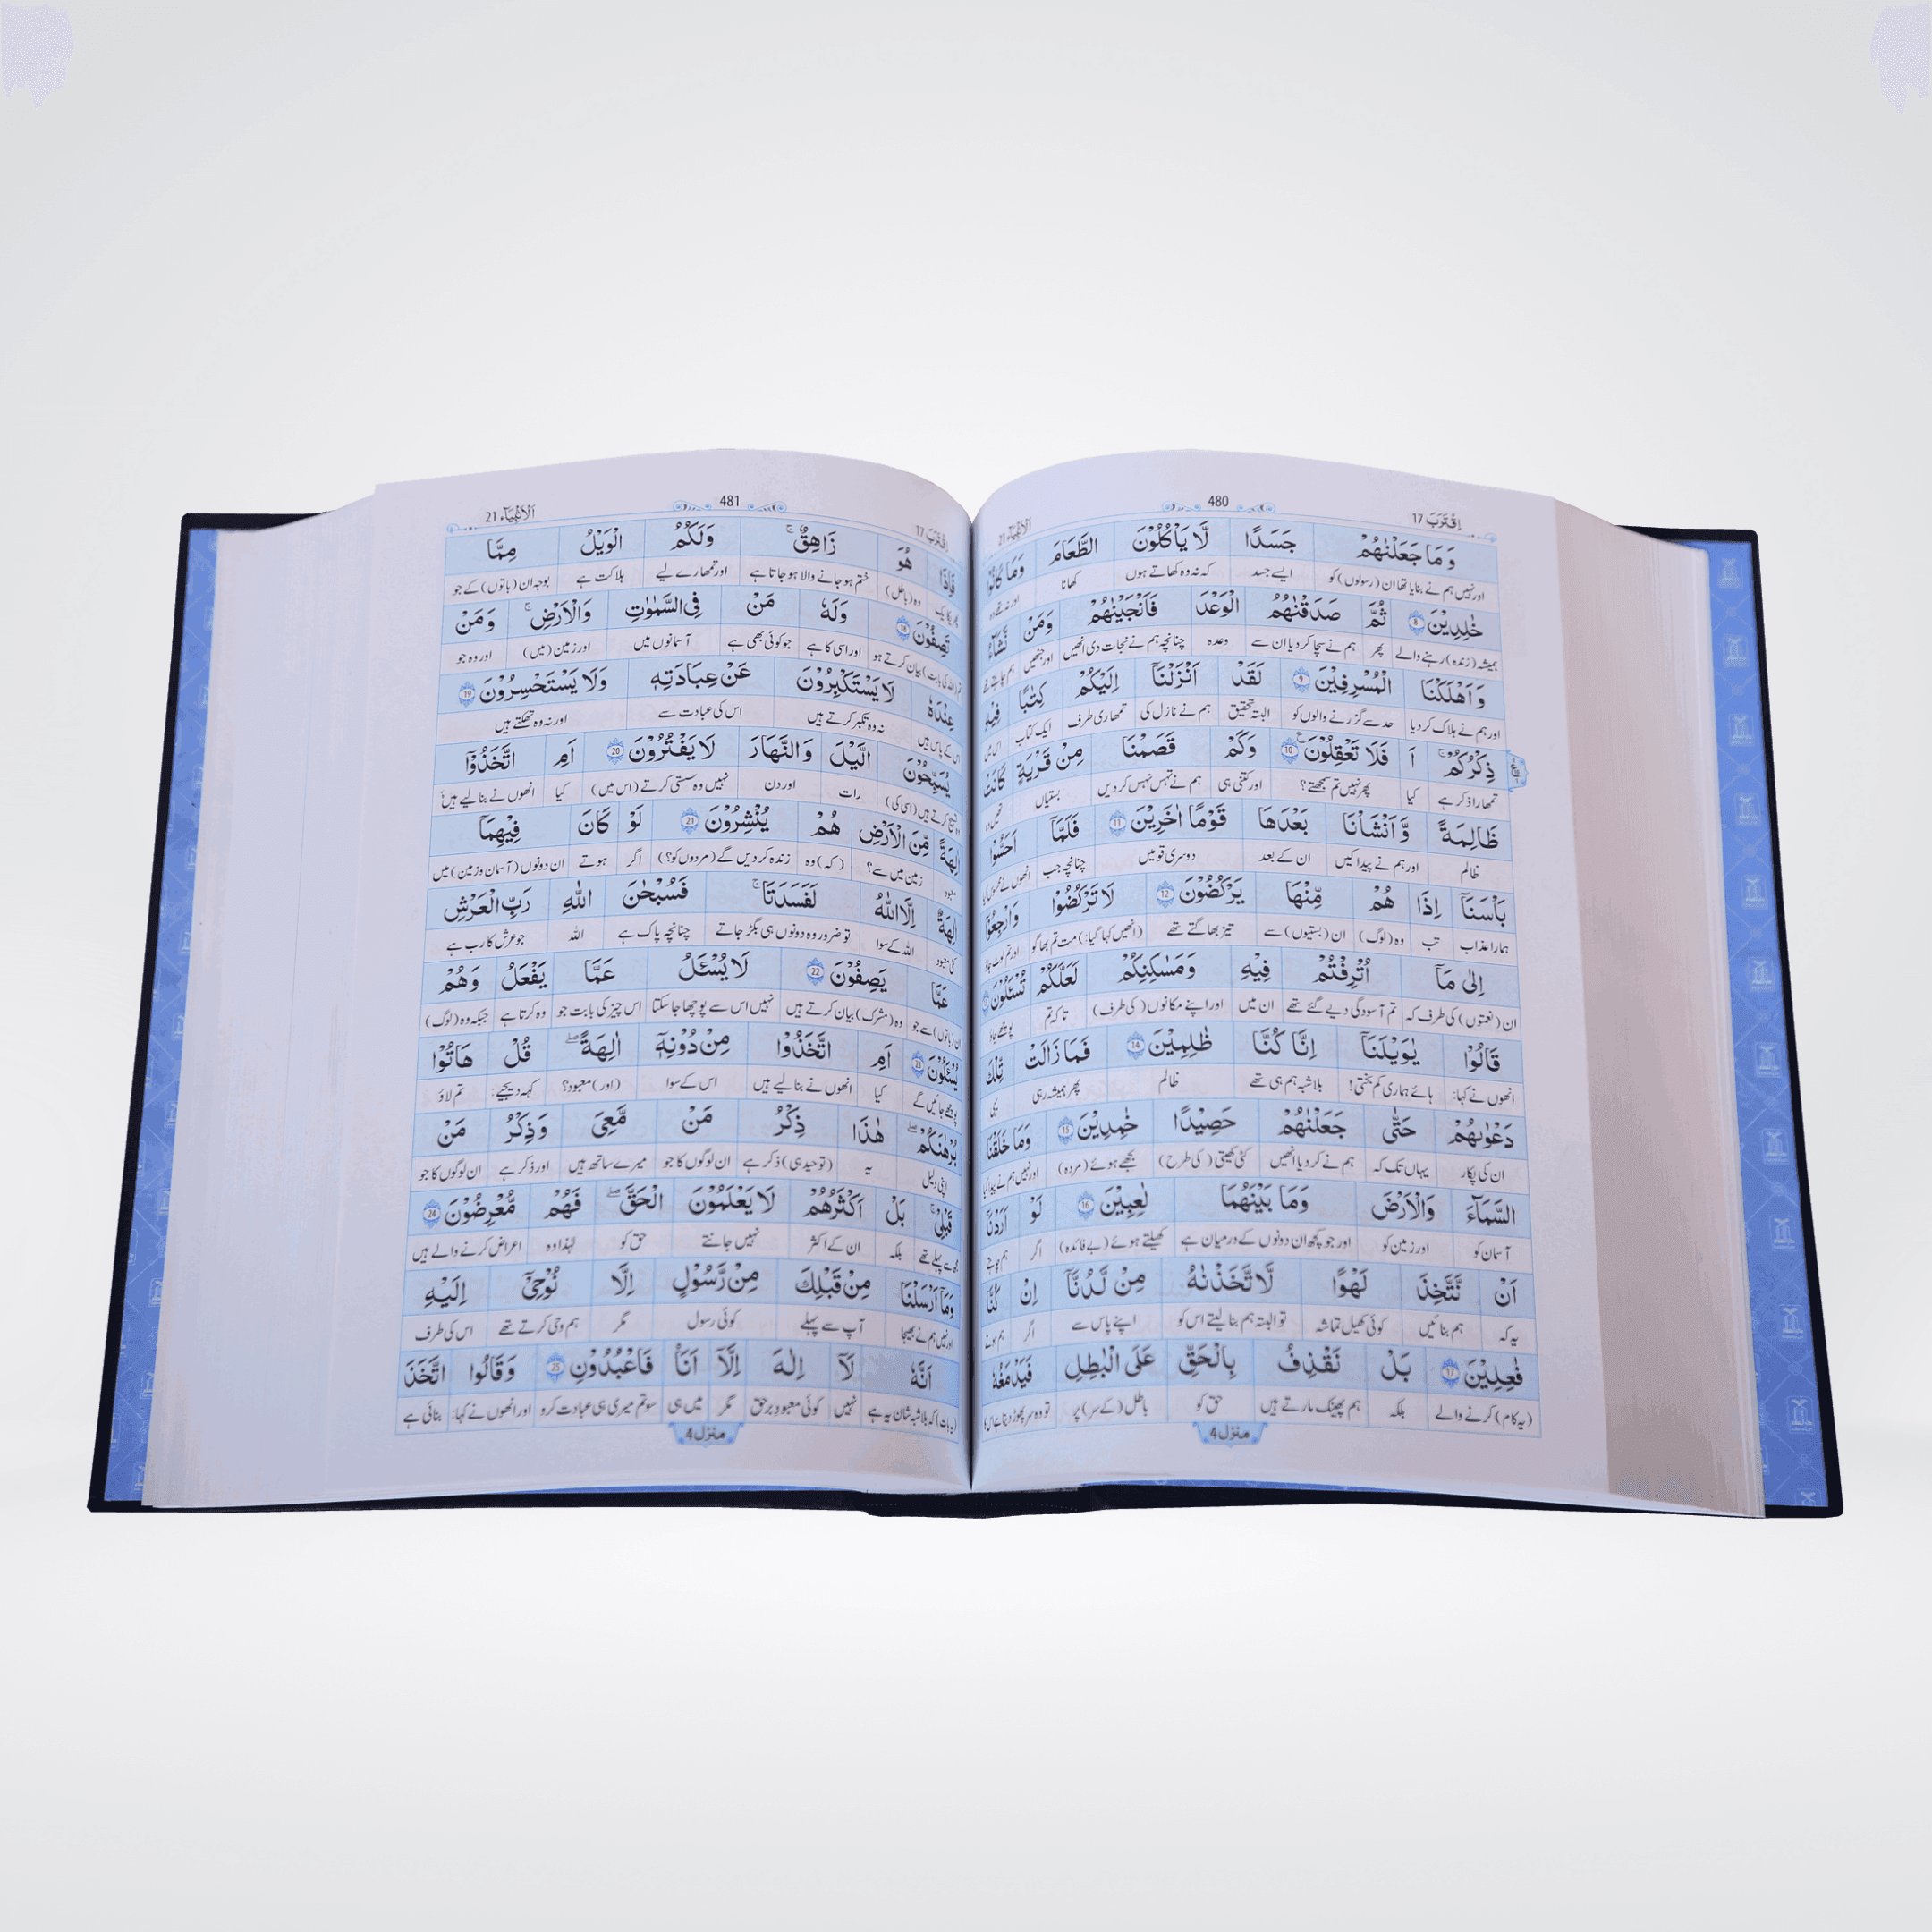 اِقْتَرَبَ 17 480 اَلْاَنْۢبِيَآء 21
وَ مَا جَعَلْنٰهُمْ جَسَدًا لَّا يَاْكُلُوْنَ الطَّعَامَ وَمَا كَانُوْا
اور نہیں ہم نے بنایا تھا ان (رسولوں) کو ایسے جسد کہ نہ وہ کھاتے ہوں کھانا اور نہ تھے وہ
خٰلِدِيْنَ 8 ثُمَّ صَدَقْنٰهُمُ الْوَعْدَ فَاَنْجَيْنٰهُمْ وَمَنْ نَّشَآءُ
ہمیشہ (زندہ) رہنے والے پھر ہم نے سچا کر دیا ان سے وعدہ چنانچہ ہم نے نجات دی انھیں اور جنھیں ہم چاہتے تھے
وَ اَهْلَكْنَا الْمُسْرِفِيْنَ 9 لَقَدْ اَنْزَلْنَآ اِلَيْكُمْ كِتٰبًا فِيْهِ
اور ہم نے ہلاک کر دیا حد سے گزرنے والوں کو البتہ تحقیق ہم نے نازل کی تمھاری طرف ایک کتاب اس میں
ذِكْرُكُمْ ۚ اَ فَلَا تَعْقِلُوْنَ 10 وَكَمْ قَصَمْنَا مِنْ قَرْيَةٍ كَانَتْ
تمھارا ذکر ہے کیا پھر نہیں تم سمجھتے؟ اور کتنی ہی ہم نے تہس نہس کر دیں بستیاں تھیں وہ
ظَالِمَةً وَّ اَنْشَاْنَا بَعْدَهَا قَوْمًا اٰخَرِيْنَ 11 فَلَمَّآ اَحَسُّوْا
ظالم اور ہم نے پیدا کیں ان کے بعد دوسری قومیں چنانچہ جب انھوں نے محسوس کیا
بَاْسَنَآ اِذَا هُمْ مِّنْهَا يَرْكُضُوْنَ 12 لَا تَرْكُضُوْا وَارْجِعُوْٓا
ہمارا عذاب تب وہ (لوگ) ان (بستیوں) سے تیز بھاگتے تھے (انھیں کہا گیا:) مت تم بھاگو اور تم لوٹ جاؤ
اِلٰى مَآ اُتْرِفْتُمْ فِيْهِ وَمَسٰكِنِكُمْ لَعَلَّكُمْ تُسْـَٔلُوْنَ
ان (نعمتوں) کی طرف کہ تم آسودگی دیے گئے تھے ان میں اور اپنے مکانوں (کی طرف) تاکہ تم پوچھے جاؤ
قَالُوْا يٰوَيْلَنَآ اِنَّا كُنَّا ظٰلِمِيْنَ 14 فَمَا زَالَتْ تِّلْكَ
انھوں نے کہا: ہائے ہماری کم بختی! بلاشبہ ہم ہی تھے ظالم پھر ہمیشہ رہی یہی
دَعْوٰىهُمْ حَتّٰى جَعَلْنٰهُمْ حَصِيْدًا خٰمِدِيْنَ 15 وَمَا خَلَقْنَا
ان کی پکار یہاں تک کہ ہم نے کر دیا انھیں کٹی کھیتی (کی طرح) بجھے ہوئے (مردہ) اور نہیں ہم نے پیدا کیا
السَّمَآءَ وَالْاَرْضَ وَمَا بَيْنَهُمَا لٰعِبِيْنَ 16 لَوْ اَرَدْنَآ
آسمان کو اور زمین کو اور جو کچھ ان دونوں کے درمیان ہے کھیلتے ہوئے (بے فائدہ) اگر ہم چاہتے
اَنْ نَّتَّخِذَ لَهْوًا لَّاتَّخَذْنٰهُ مِنْ لَّدُنَّآ اِنْ كُنَّا
یہ کہ ہم بنائیں کوئی کھیل تماشہ تو البتہ ہم بنا لیتے اس کو اپنے پاس سے اگر ہم ہوتے
فٰعِلِيْنَ 17 بَلْ نَقْذِفُ بِالْحَقِّ عَلَى الْبٰطِلِ فَيَدْمَغُهٗ
(یہ کام) کرنے والے بلکہ ہم پھینک مارتے ہیں حق کو باطل (کے سر) پر تو وہ سر پھوڑ دیتا ہے اس کا
منزل 4
اِقْتَرَبَ 17 481 اَلْاَنْۢبِيَآء 21
فَاِذَا هُوَ زَاهِقٌ ۚ وَلَكُمُ الْوَيْلُ مِمَّا
پھر یکایک وہ (باطل) ختم ہو جانے والا ہو جاتا ہے اور تمھارے لیے ہلاکت ہے بوجہ ان (باتوں) کے جو
تَصِفُوْنَ 18 وَلَهٗ مَنْ فِى السَّمٰوٰتِ وَالْاَرْضِ ۚ وَمَنْ
تم (اللہ کی بابت) بیان کرتے ہو اور اسی کا ہے جو کوئی بھی ہے آسمانوں میں اور زمین (میں) اور وہ جو
عِنْدَهٗ لَا يَسْتَكْبِرُوْنَ عَنْ عِبَادَتِهٖ وَلَا يَسْتَحْسِرُوْنَ 19
اس کے پاس ہیں نہ وہ تکبر کرتے ہیں اس کی عبادت سے اور نہ وہ تھکتے ہیں
يُسَبِّحُوْنَ الَّيْلَ وَالنَّهَارَ لَا يَفْتُرُوْنَ 20 اَمِ اتَّخَذُوْٓا
وہ تسبیح کرتے ہیں (اسی کی) رات اور دن نہیں وہ سستی کرتے (اس میں) کیا انھوں نے بنا لیے ہیں
اٰلِهَةً مِّنَ الْاَرْضِ هُمْ يُنْشِرُوْنَ 21 لَوْ كَانَ فِيْهِمَآ
معبود زمین میں سے؟ (کہ) وہ زندہ کر دیں گے (مردوں کو؟) اگر ہوتے ان دونوں (آسمان و زمین) میں
اٰلِهَةٌ اِلَّا اللّٰهُ لَفَسَدَتَا ۚ فَسُبْحٰنَ اللّٰهِ رَبِّ الْعَرْشِ
کئی معبود اللہ کے سوا تو ضرور وہ دونوں ہی بگڑ جاتے چنانچہ پاک ہے اللہ جو عرش کا رب ہے
عَمَّا يَصِفُوْنَ 22 لَا يُسْـَٔلُ عَمَّا يَفْعَلُ وَهُمْ
ان (باتوں) سے جو وہ (مشرک) بیان کرتے ہیں نہیں اس سے پوچھا جا سکتا اس چیز کی بابت جو وہ کرتا ہے جبکہ وہ (لوگ)
يُسْـَٔلُوْنَ 23 اَمِ اتَّخَذُوْا مِنْ دُوْنِهٖٓ اٰلِهَةً ۖ قُلْ هَاتُوْا
پوچھے جائیں گے کیا انھوں نے بنا لیے ہیں اس کے سوا (اور) معبود؟ کہہ دیجیے: تم لاؤ
بُرْهٰنَكُمْ ۖ هٰذَا ذِكْرُ مَنْ مَّعِىَ وَذِكْرُ مَنْ
اپنی دلیل یہ (توحید ہی) ذکر ہے ان لوگوں کا جو میرے ساتھ ہیں اور ذکر ہے ان لوگوں کا جو
قَبْلِىْ ۚ بَلْ اَكْثَرُهُمْ لَا يَعْلَمُوْنَ الْحَقَّ ۖ فَهُمْ مُّعْرِضُوْنَ 24
سے پہلے تھے بلکہ ان کے اکثر نہیں جانتے حق کو لہٰذا وہ اعراض کرنے والے ہیں
وَمَآ اَرْسَلْنَا مِنْ قَبْلِكَ مِنْ رَّسُوْلٍ اِلَّا نُوْحِىْٓ اِلَيْهِ
اور نہیں ہم نے بھیجا آپ سے پہلے کوئی رسول مگر ہم وحی کرتے تھے اس کی طرف
اَنَّهٗ لَآ اِلٰهَ اِلَّآ اَنَا۠ فَاعْبُدُوْنِ 25 وَقَالُوا اتَّخَذَ
(یہ بات) کہ بلاشبہ شان یہ ہے نہیں کوئی معبود برحق مگر میں ہی سو تم میری ہی عبادت کرو اور انھوں نے کہا: بنائی ہے
منزل 4